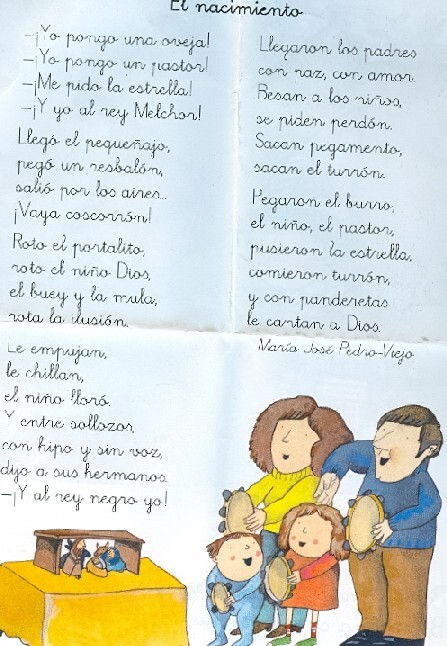 El nacimiento
-¡Yo pongo una oveja!
-¡Yo pongo un pastor!
-¡Me pido la estrella!
-¡Y yo al rey Melchor!
Llegó el pequeñajo,
pegó un resbalón,
salió por los aires..
¡Vaya coscorrón!
Roto el portalito,
roto el niño Dios,
el buey y la mula,
rota la ilusión.
Le empujan,
le chillan,
el niño lloró.
Y entre sollozos,
con hipo y sin voz,
dijo a sus hermanos
-¡Y al rey negro yo!
Llegaron los padres
con paz, con amor.
Besan a los niños,
se piden perdón.
Sacan pegamento,
sacan el turrón.
Pegaron el burro,
el niño, el pastor,
pusieron la estrella,
comieron turrón,
y con panderetas
le cantan a Dios.
María José Pedro-Viejo